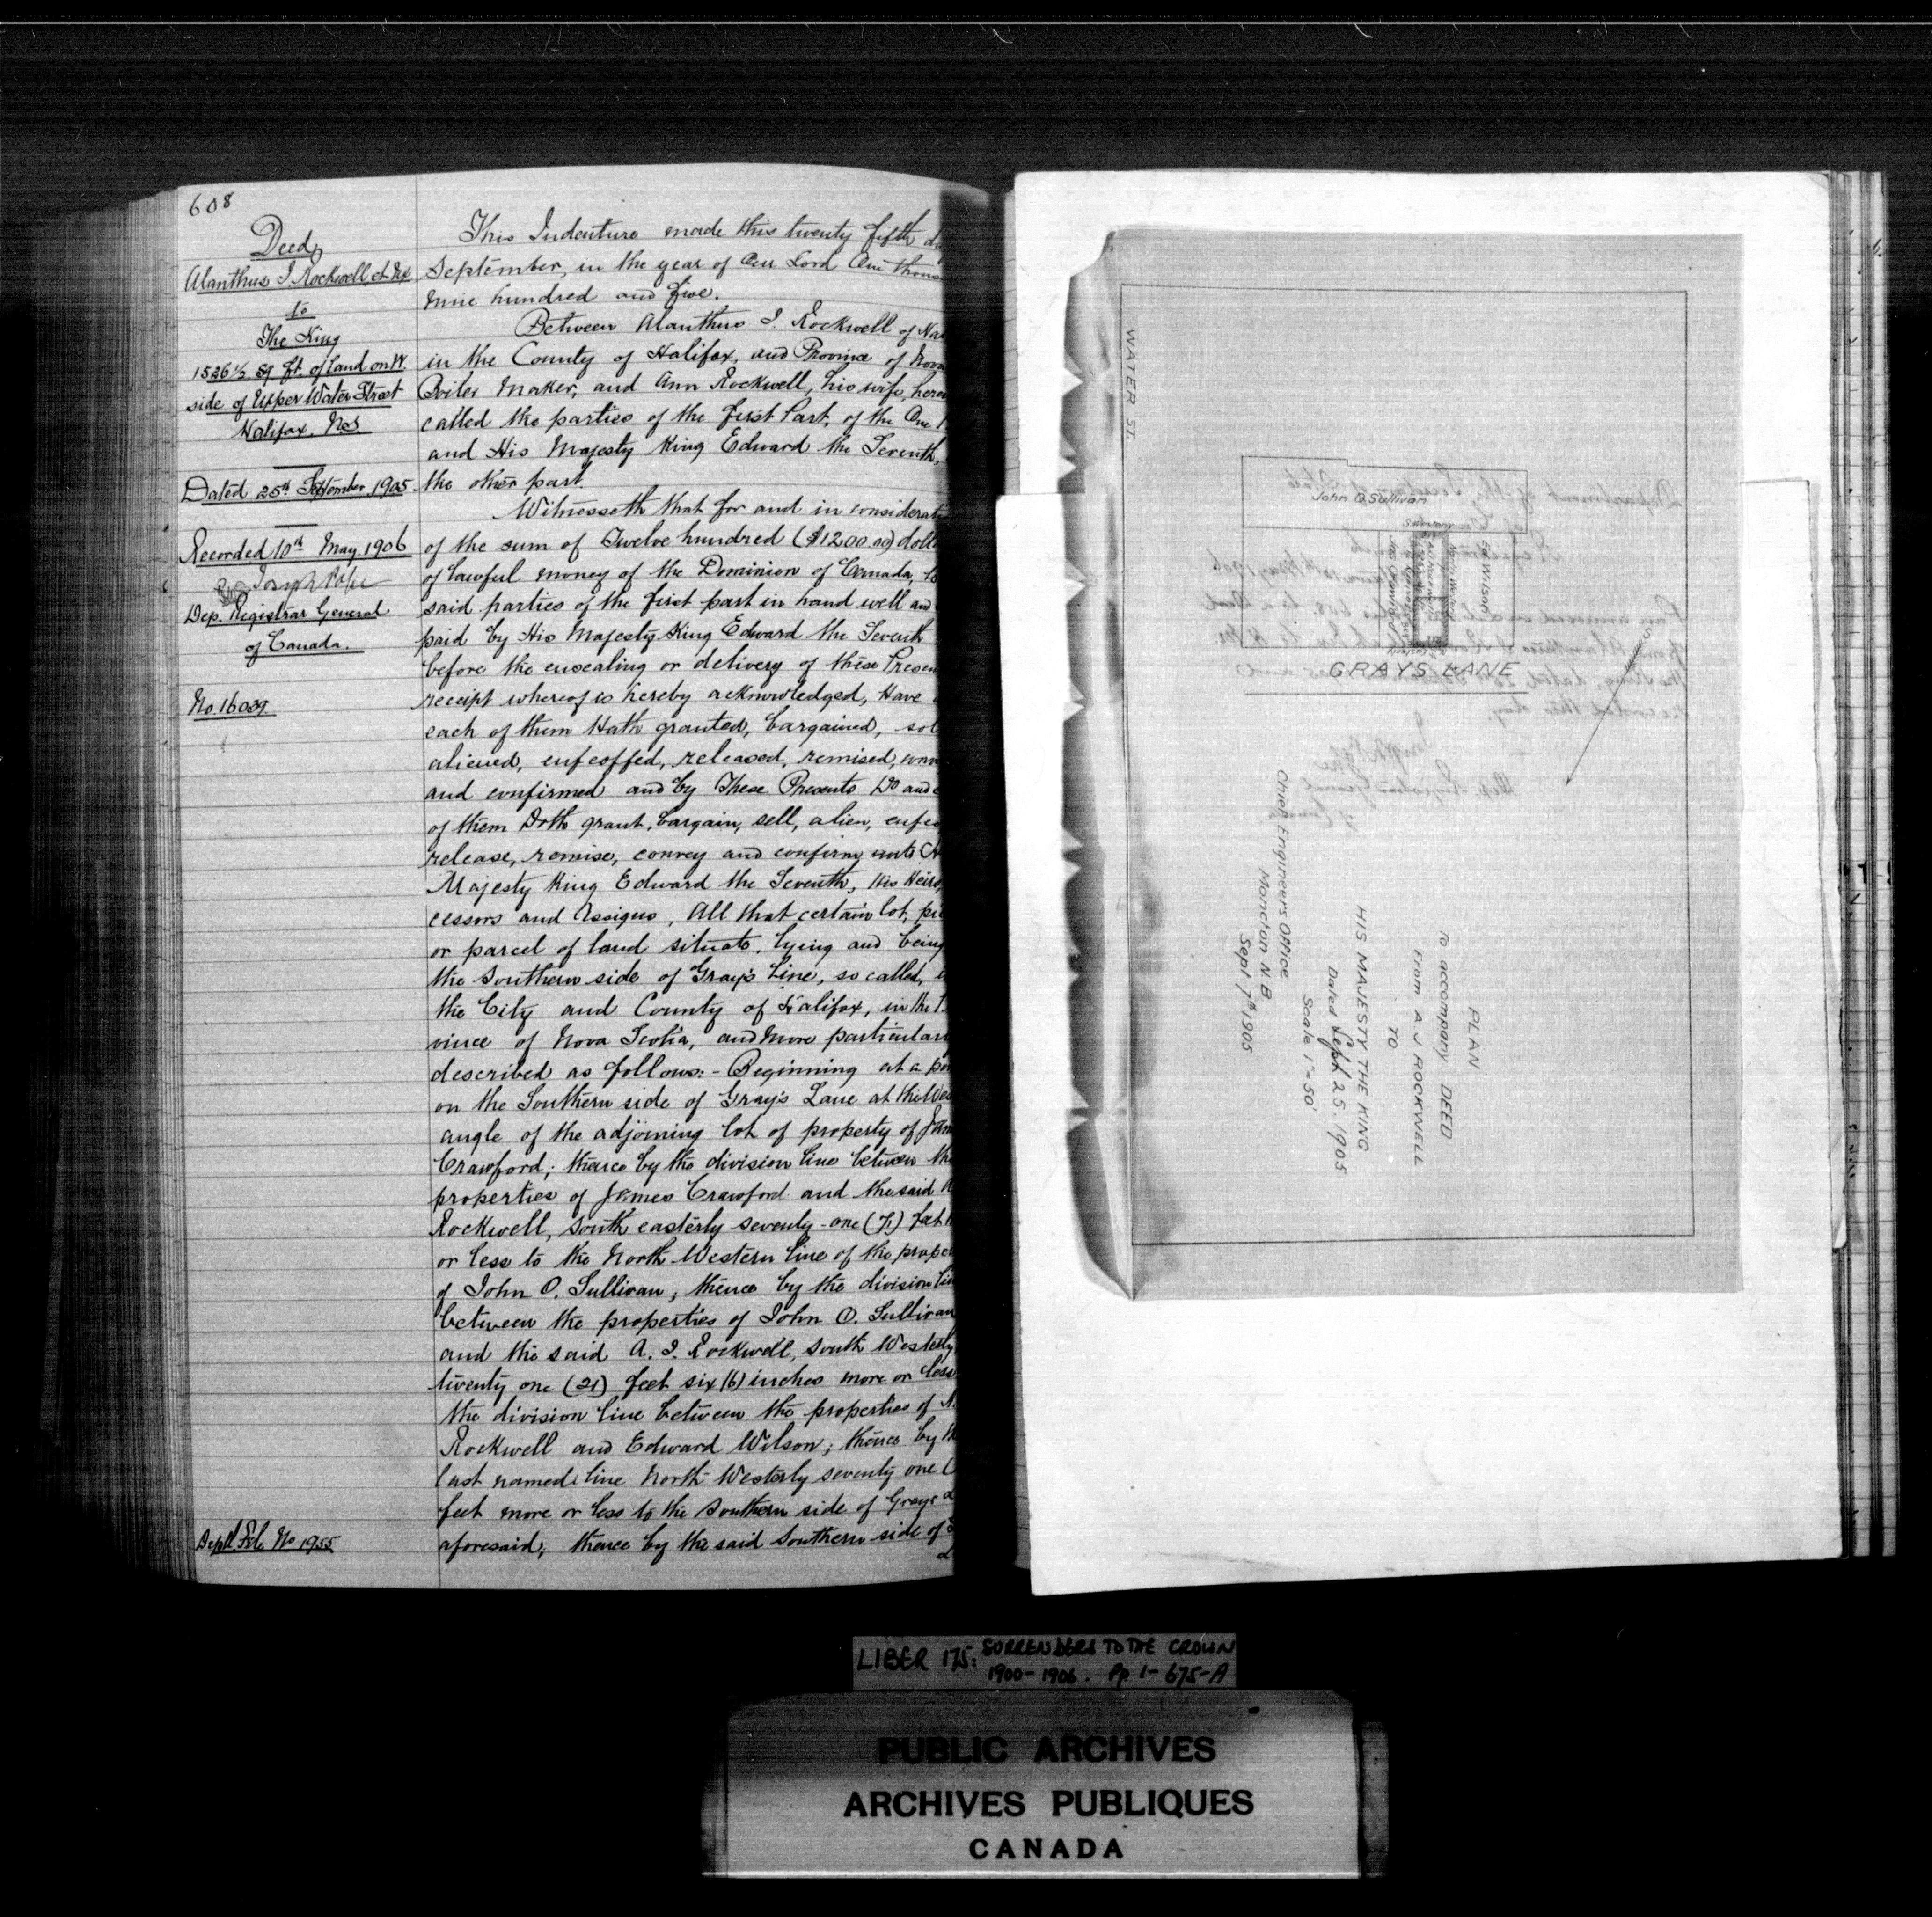 608
Deed
Alanthus I Rockwell et ux
to
The King
1526½ sq ft. of land on W.
side of Upper Water Street
Halifax. N.S.
Dated 25th September 1905
Recorded 10th May. 1906
Joseph Pope
Dep. Registrar General
of Canada.
No. 16039
Deptl File No 1955
This Indenture made this twenty fifth
September, in the year of Our Lord One
nine hundred and five.
Between Alanthus I. Rockwell of
in the County of Halifax, and Province of
Boiler Maker, and Ann Rockwell, his wife,
called the parties of the first Part, of the One
and His Majesty King Edward the Seventh,
the other part.
Witnesseth that for and in
of the sum of Twelve hundred ($1200.00)
of lawful money of the Dominion of Canada,
said parties of the first part in hand well and
paid by His Majesty King Edward the Seventh
before the ensealing or delivery of these
receipt whereof is hereby acknowledged, Have
each of them Hath granted, bargained,
aliened, enfeoffed, released, remised,
and confirmed and by These Presents Do and
of them Doth grant, bargain, sell, alien,
release, remise, convey and confirm unto
Majesty King Edward the Seventh, His Heirs,
cessors and Assigns, All that certain lot,
or parcel of land situate, lying and being
the Southern side of Gray's Line, so called,
the City and County of Halifax, in the
vince of Nova Scotia, and more
described as follows:- Beginning at a
on the Southern side of Gray's Lane at the
angle of the adjoining lot of property of
Crawford; thence by the division line between the
properties of James Crawford and the said
Rockwell, South easterly seventy-one (71) feet
or less to the North Western line of the
of John O. Sullivan; thence by the division
between the properties of John O. Sullivan
and the said A. I. Rockwell, South Westerly
twenty one (21) feet six (6) inches more or less
the division line between the properties of A.
Rockwell and Edward Wilson; thence by
last named line North Westerly seventy one
feet more or less to the Southern side of Grays
aforesaid; thence by the said Southern side of
WATER ST.
John O. Sullivan
Ed Wilson
Jas Crawford
GRAYS LANE
S
PLAN
To accompany DEED
From A J ROCKWELL
TO
HIS MAJESTY THE KING
Dated Sept 25. 1905
Scale 1" = 50'
Chief Engineers Office
Moncton N.B.
Sept 7th 1905
LIBER 175: SURRENDERS TO THE CROWN
1900-1906. Pp. 1-675-A
PUBLIC ARCHIVES
ARCHIVES PUBLIQUES
CANADA